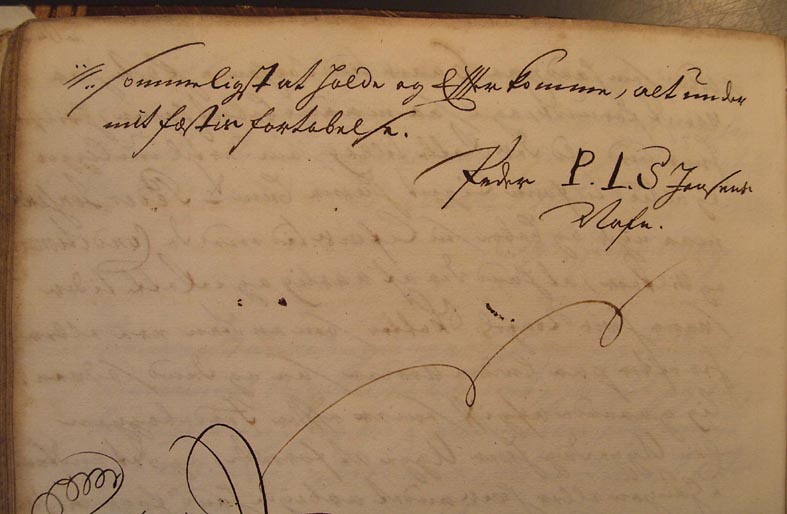 sommeligst at holde og Efterkomme, alt under
mit fæstis fortabelse.
Peder P. L. S Jensens
Nafn.